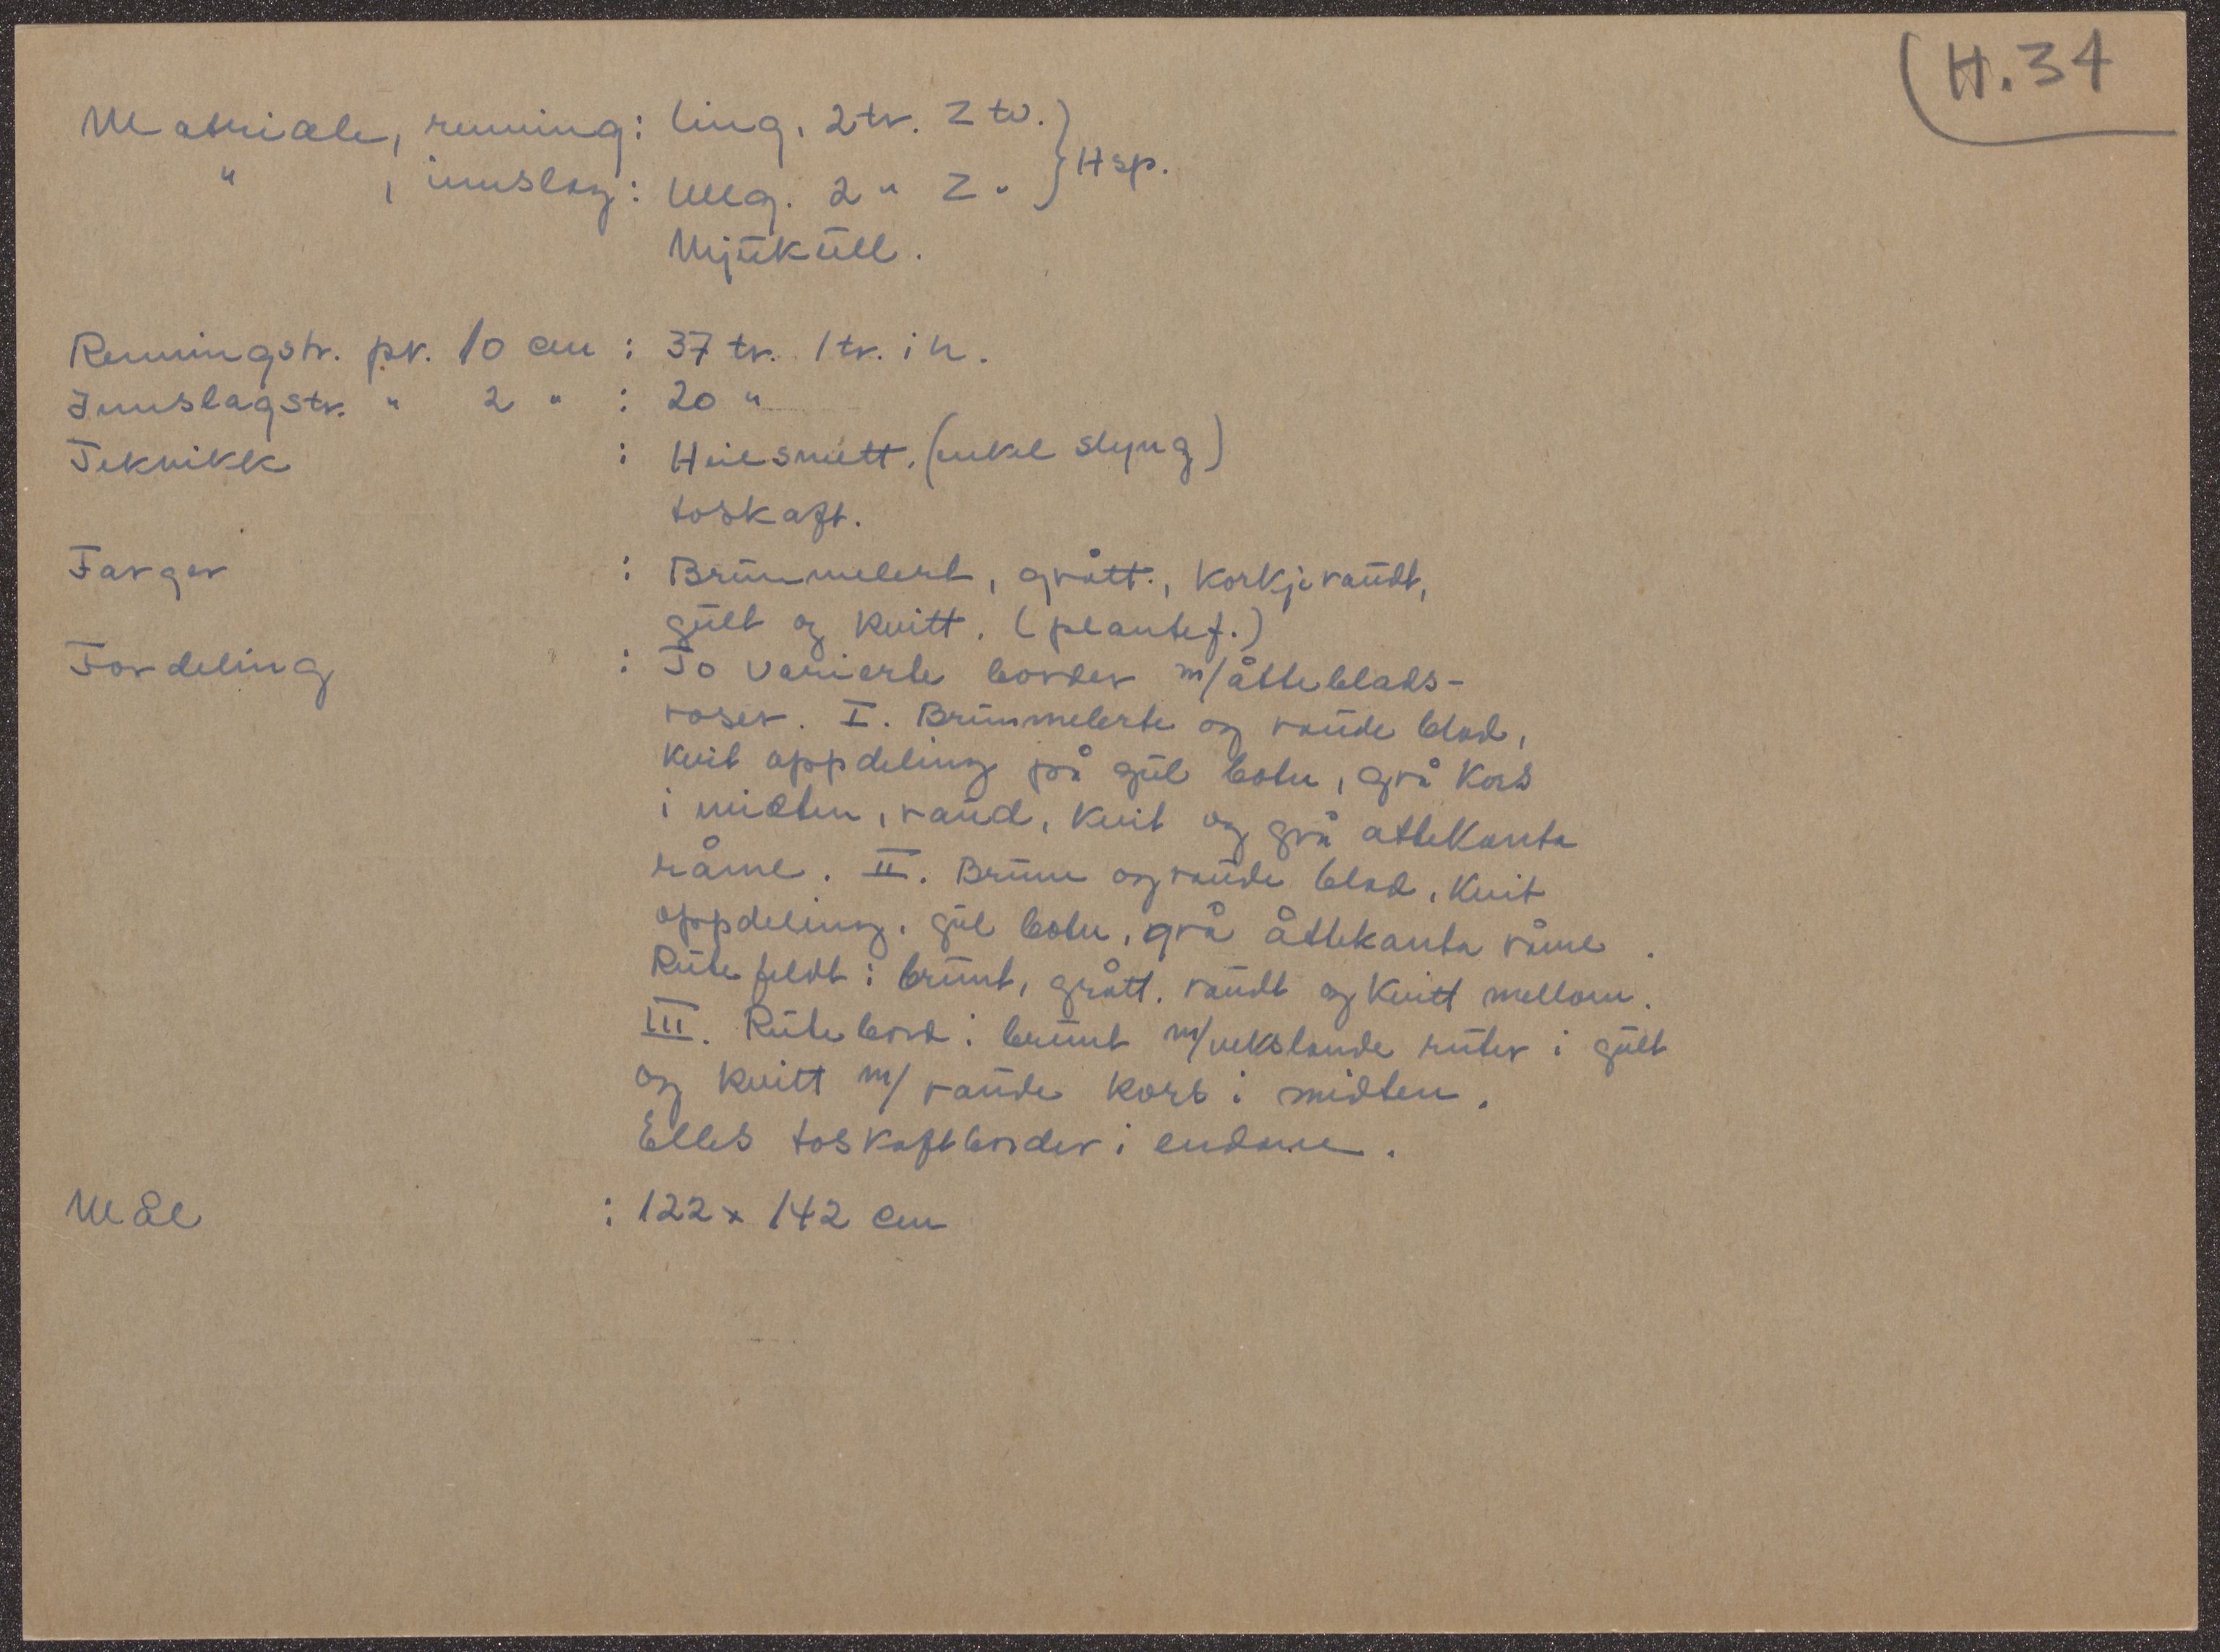 H. 34
Matriale, renning: ling. 2 tr. Z tv. } Hsp.
" , innslag: ullg. 2 " Z "
Mjukull.
Renningstr. pr. 10 cm : 37 tr. 1 tr. i h.
Innslagstr. " 2 " : 20 "
Teknikk : Heilsmett. (enkel slyng)
toskaft.
Farger : Brunmelert, grått., korkjeraudt,
gult og kvitt. (plantef.)
Fordeling : To varierte border m/åtteblads-
roser. I. Brunmelerte og raude blad,
kvit oppdeling på gul botn, grå kors
i midten, raud, kvit og grå attekanta
råme. II. Brune og raude blad. Kvit
oppdeling. gul botn, grå åttekanta råme.
Rutefeldt: brunt, grått. raudt og kvitt mellom.
III. Rutebord: brunt m/vekslande ruter i gult
og kvitt m/ raude kors i midten.
Elles toskaftborder i endane.
Mål : 122 x 142 cm